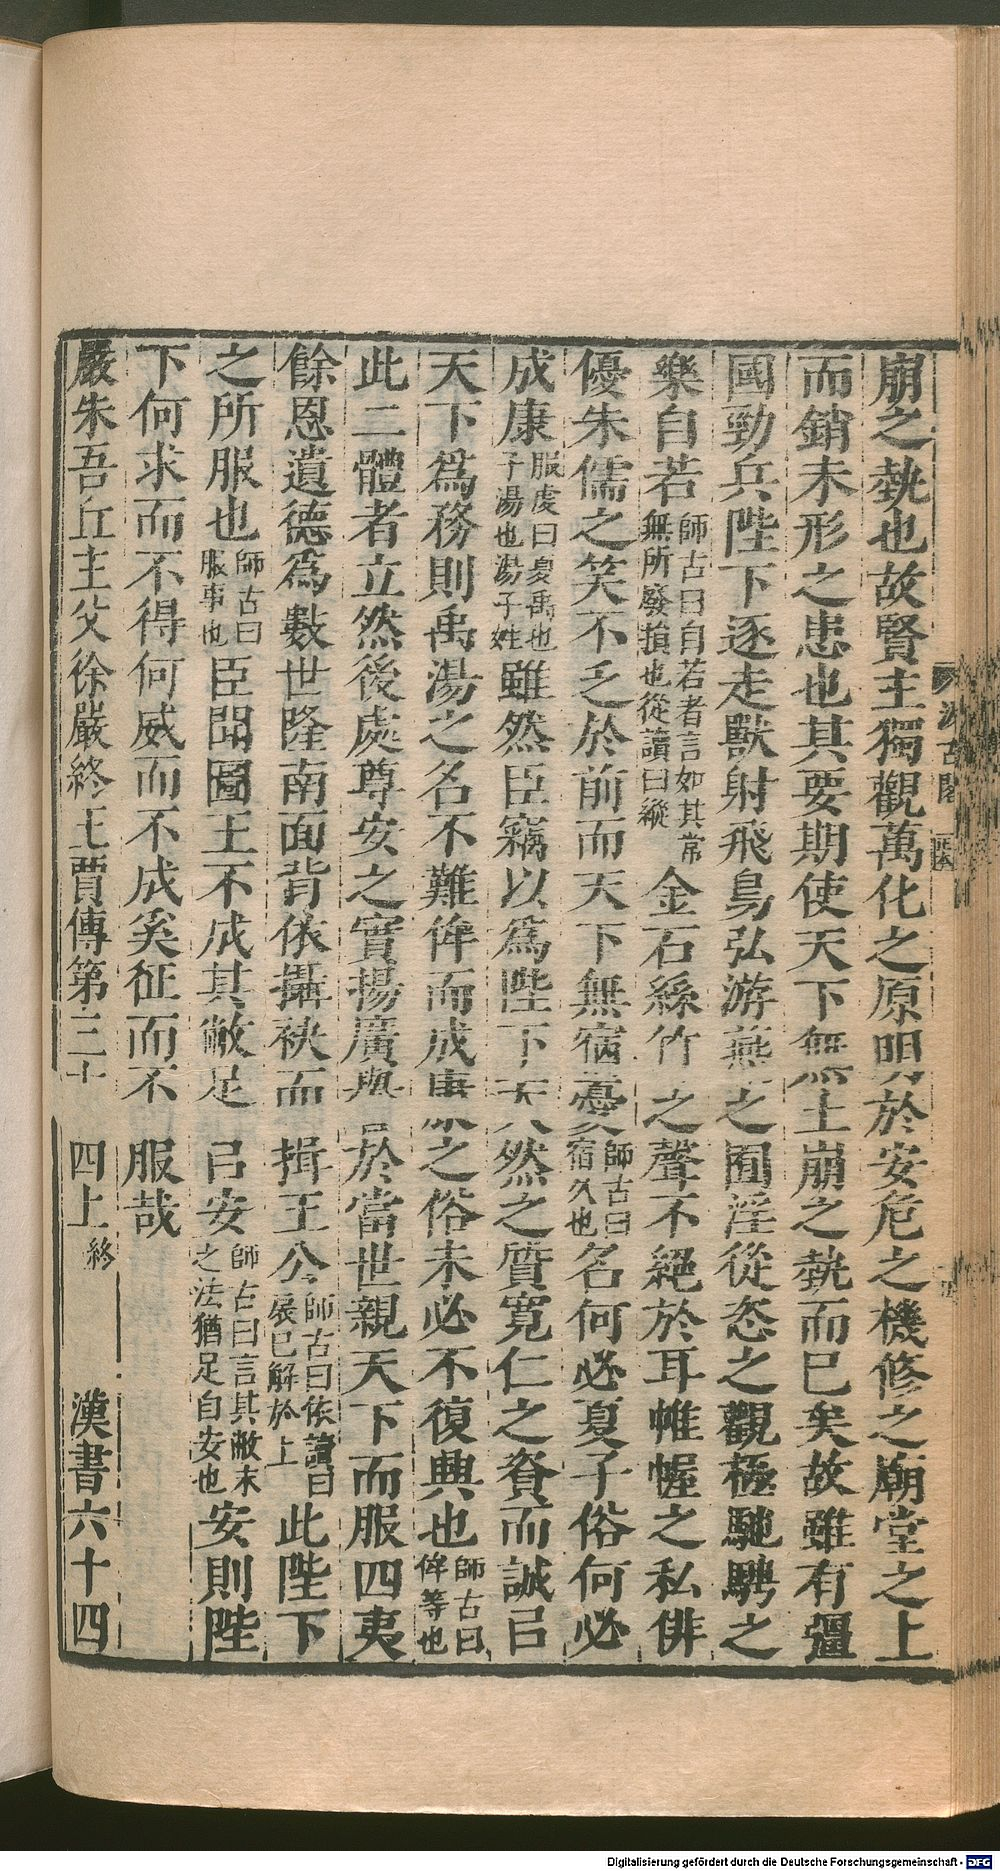 崩之埶也故賢主獨觀萬化之原明於安危之機修之廟堂之上
而銷未形之患也其要期使天下無土崩之埶而已矣故雖有彊
國勁兵陛下逐走獸射飛鳥弘游燕之囿淫從恣之觀極馳騁之
樂自若師古曰自若者言如其常無所廢損也從讀曰縱金石絲竹之聲不絕於耳帷幄之私俳
優朱儒之笑不乏於前而天下無宿憂師古曰宿久也名何必夏子俗何必
成康服虔曰夏禹也子湯也湯子姓雖然臣竊以爲陛下天然之質寬仁之資而誠㠯
天下爲務則禹湯之名不難侔而成康之俗未必不復興也師古曰侔等也
此二體者立然後處尊安之實揚廣譽於當世親天下而服四夷
餘恩遺德爲數世隆南面背依攝袂而揖王公師古曰依讀曰扆已解於上此陛下
之所服也師古曰服事也臣聞圖王不成其敝足㠯安師古曰言其敝末之法猶足自安也安則陛
下何求而不得何威而不成奚征而不服哉
嚴朱吾丘主父徐嚴終王賈傳第三十四上終 漢書六十四
汲古閣
正本
Digitalisierung gefördert durch die Deutsche Forschungsgemeinschaft - DFG